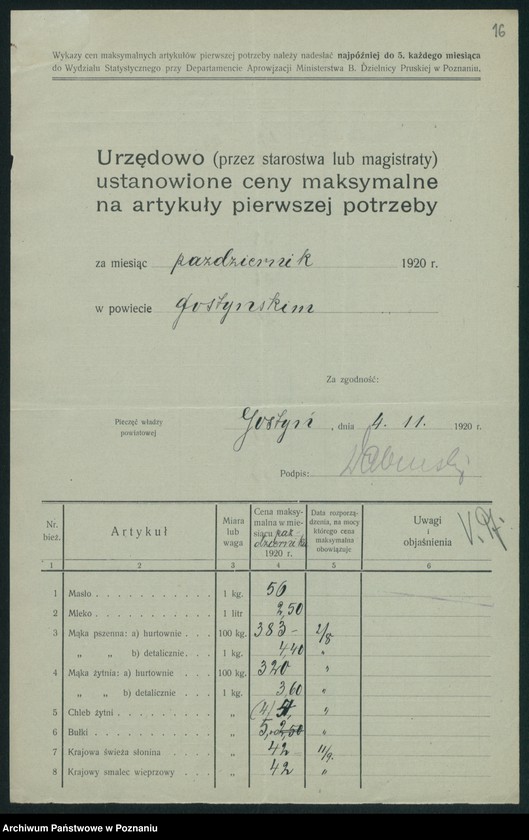 16
Wykazy cen maksymalnych artykułów pierwszej potrzeby należy nadesłać najpóźniej do 5. każdego miesiąca
do Wydziału Statystycznego przy Departamencie Aprowizacji Ministerstwa B. Dzielnicy Pruskiej w Poznaniu.
Urzędowo (przez starostwa lub magistraty)
ustanowione ceny maksymalne
na artykuły pierwszej potrzeby
za miesiąc pazdziernik 1920 r.
w powiecie gostynskim
Za zgodność:
Pieczęć władzy
powiatowej
Gostyń, dnia 4. 11. 1920 r.
Podpis:
Nr. bież. Artykuł Miara lub waga Cena maksymalna w miesiącu pazdziernik 1920 r. Data rozporządzenia, na mocy którego cena maksymalna obowiązuje Uwagi i objaśnienia
1 2 3 4 5 6
1 Masło 1 kg. 56
2 Mleko 1 litr 2,50
3 Mąka pszenna: a) hurtownie 100 kg. 383- 2/8
„ „ b) detalicznie 1 kg. 4,40 „
4 Mąka żytnia: a) hurtownie 100 kg. 320 „
„ „ b) detalicznie 1 kg. 3,60 „
5 Chleb żytni „ „
6 Bułki „ „
7 Krajowa świeża słonina „ 42 11/9.
8 Krajowy smalec wieprzowy „ 42 „
Archiwum Państwowe w Poznaniu